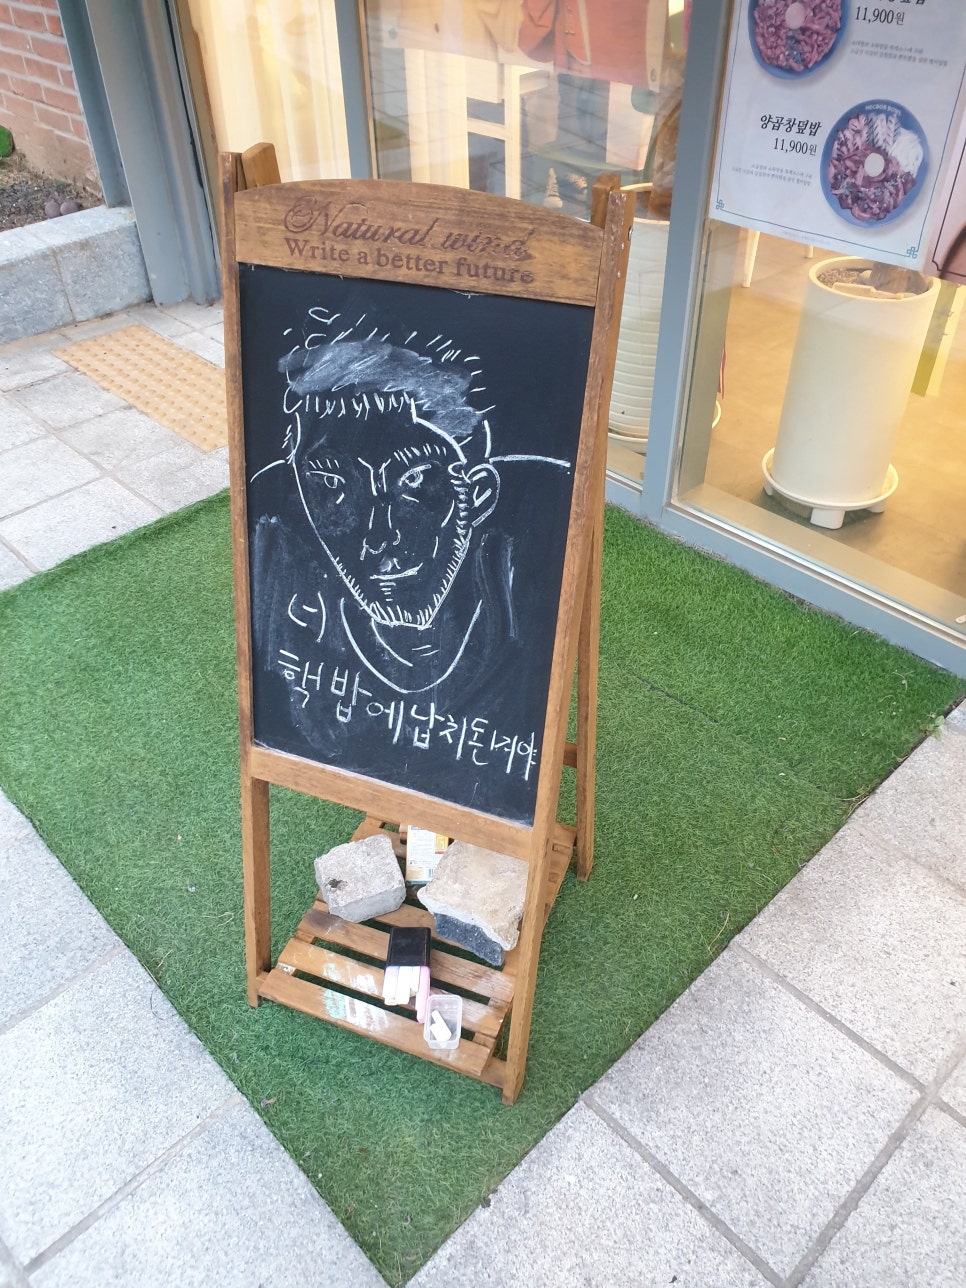 Natural wind
Write a better future
핵밥에납치된거야
11,900원
양곱창덮밥
11,900원